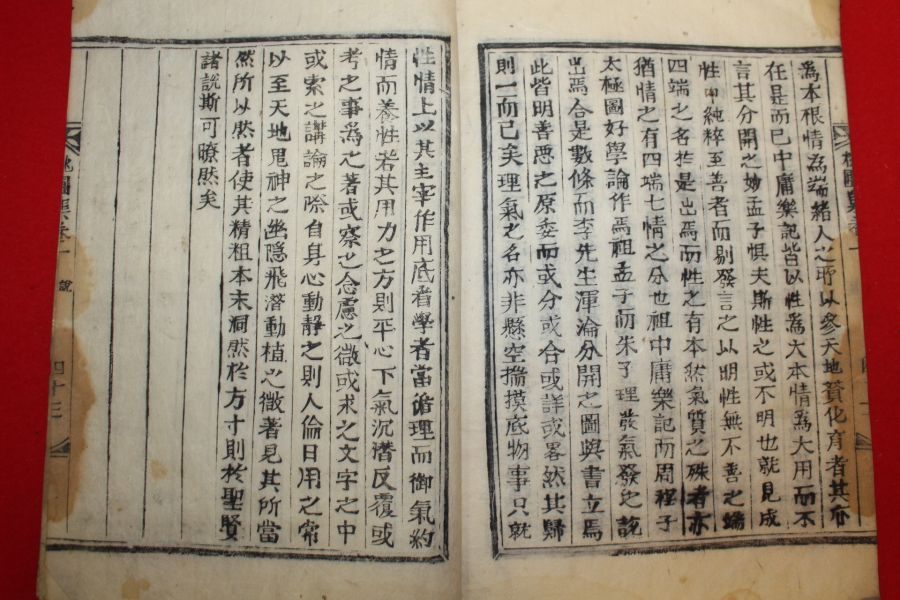 為本根情為端緖人之所以參天地贊化育者其亦
在是而已中庸樂記皆以性為大本情為大用而不
言其分開之妙孟子惧夫斯性之或不明也就見成
性中純粹至善者而剔發言之以明性無不善之端
四端之名於是出焉而性之有本然氣質之殊者亦
猶情之有四端七情之分也祖中庸樂記而周程子
太極圖好學論作焉祖孟子而朱子理發氣發之說
出焉合是數條而李先生渾淪分開之圖與書立焉
此皆明善惡之原委而或分或合或詳或畧然其歸
則一而已矣理氣之名亦非懸空揣摸底物事只就
性情上以其主宰作用底看學者當循理而御氣約
情而養性若其用力之方則平心下氣沉潛反覆或
考之事爲之著或察之念慮之微或求之文字之中
或索之講論之際自身心動靜之則人倫日用之常
以至天地鬼神之幽隱飛潛動植之微著見其所當
然所以然者使其精粗本末洞然於方寸則於聖賢
諸說斯可瞭然矣
圖 卷一 說 四十三